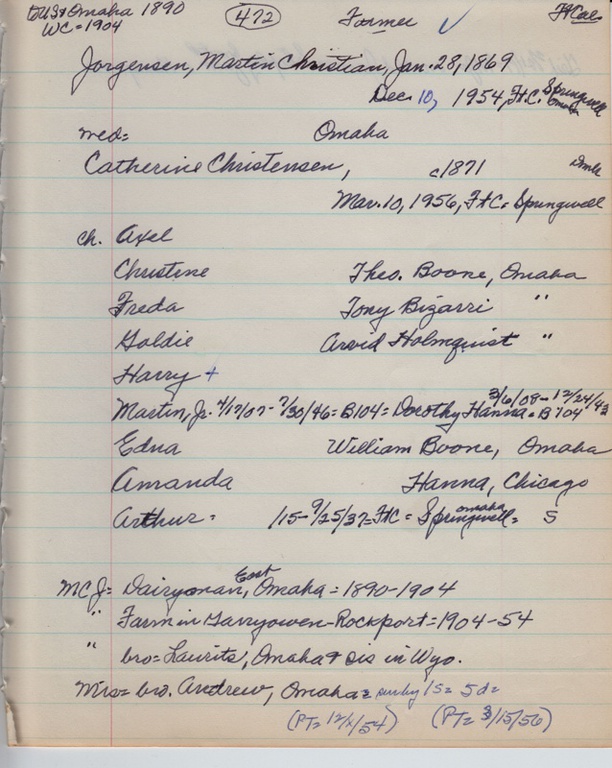 to US & Omaha 1890 472 Former ✓
WC = 1904
Jorgensen, Martin Christian, Jan. 28, 1869
Dec. 10, 1954, Ft.C. Springwell Omaha
med= Omaha
Catherine Christensen, c1871 Dmk
Mar. 10, 1956, Ft C = Springwell
ch. Axel
Christine Theo. Boone, Omaha
Freda Tony Bizarri "
Goldie Arvid Holmquist "
Harry +
Martin, Jr. 4/17/07 - 7/30/46 = B104 = Dorothy Hanna = B104 3/6/08 - 12/24/43
Edna William Boone, Omaha
Amanda Hanna, Chicago
Arthur = /15 - 9/25/37 = Ft C = Springwell = Omaha S
MCJ = Dairyman, East Omaha = 1890-1904
" Farm in Garryowen-Rockport = 1904-54
" bro = Laurits, Omaha & sis in Wyo.
Mrs = bro. Andrew, Omaha = surv by 1s = 5d =
(PT = 12/x/54) (PT = 3/15/56)